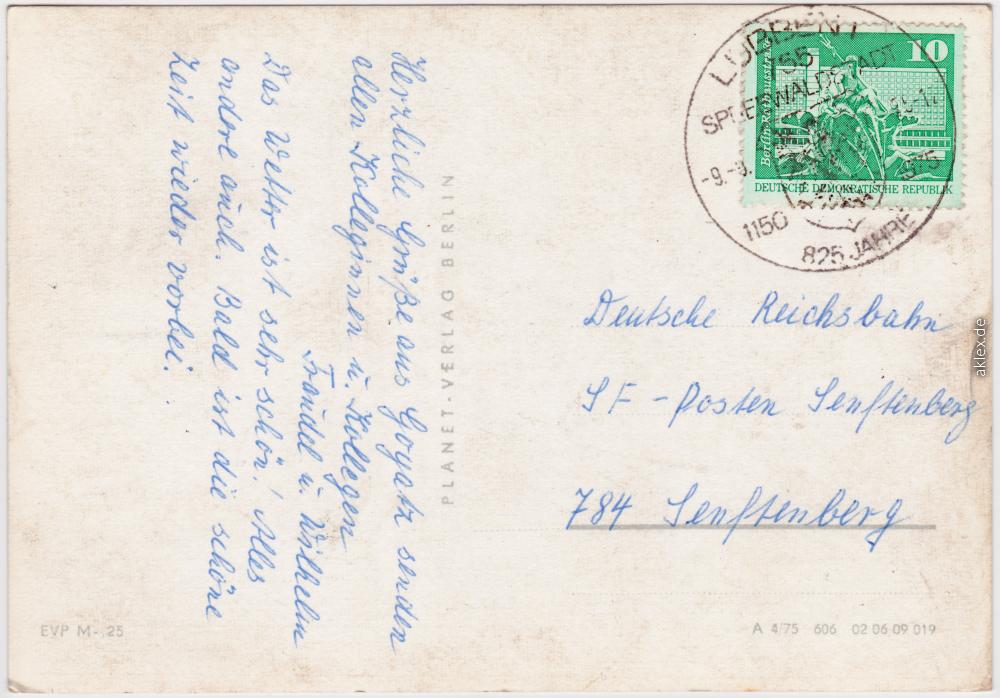 Herzliche Grüße aus Goyatz senden
allen Kolleginnen u. Kollegen
Traudel u. Wilhelm
Das Wetter ist sehr schön! Alles
andere auch. Bald ist die schöne
Zeit wieder vorbei.
PLANET-VERLAG BERLIN
EVP M -,25
LÜBBEN 1
755
SPREEWALDSTADT
-9.-9.
1150
825 JAHRE
10
Berlin-Rathausstraße
DEUTSCHE DEMOKRATISCHE REPUBLIK
Deutsche Reichsbahn
SF - Posten Senftenberg
784 Senftenberg
A 4/75 606 02 06 09 019
aklex.de